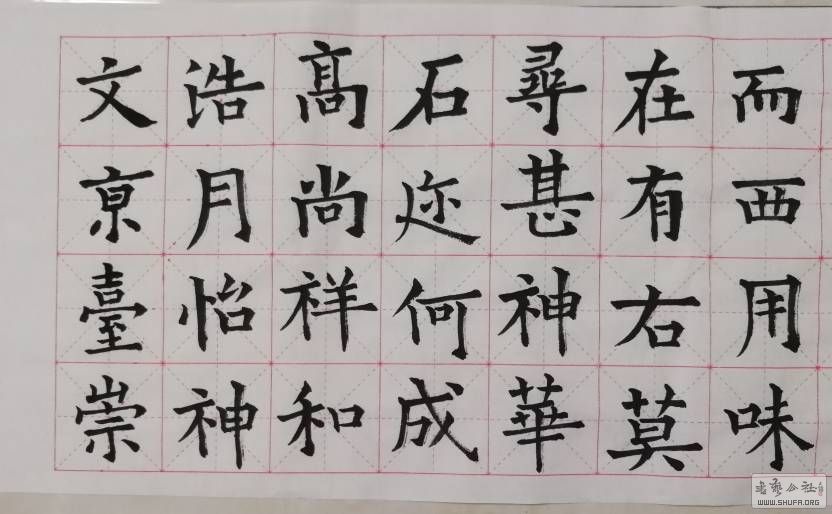 而西用味
在有右莫
尋甚神華
石迩何成
高尚祥和
浩月怡神
文亰臺崇
書藝公社
WWW.SHUFA.ORG